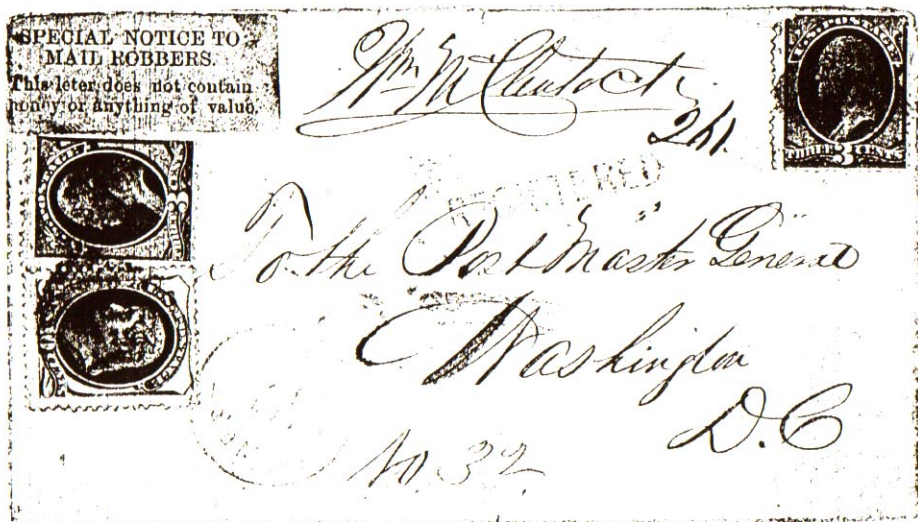 SPECIAL NOTICE TO
MAIL ROBBERS.
This leter does not contain
money or anything of value.
Wm McClintock
261.
U.S. POSTAGE
THREE 3 CENTS
REGISTERED
To the Post Master General
Washington
D.C
No. 32